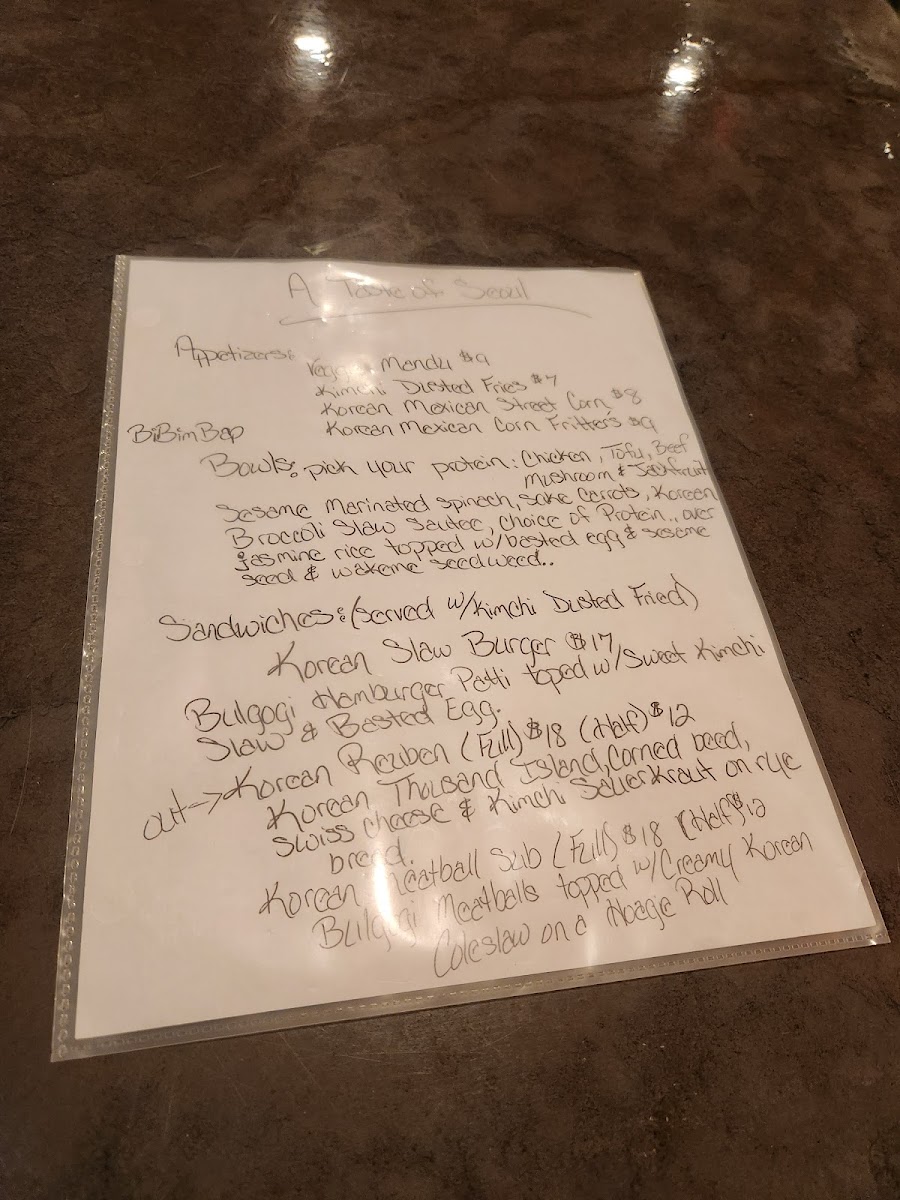 A Taste of Seoul
Appetizers: Veggie Mandu $9
Kimchi Dusted Fries $7
Korean Mexican Street Corn $8
Korean Mexican Corn Fritters $9
BiBimBap
Bowls: pick your protein: Chicken, Tofu, Beef
Mushroom & Jackfruit
Sesame Marinated spinach, sake carrots, Korean
Broccoli Slaw Sautee, choice of Protein.. over
jasmine rice topped w/basted egg & sesame
seed & wakeme seedweed..
Sandwiches: (served w/Kimchi Dusted Fried)
Korean Slaw Burger $17
Bulgogi Hamburger Patti toped w/Sweet Kimchi
Slaw & Basted Egg.
out → Korean Reuben (Full) $18 (Half) $12
Korean Thousand Island, Corned beed,
swiss cheese & Kimchi Sauerkraut on rye
bread.
Korean Meatball Sub (Full) $18 (Half) $12
Bulgogi Meatballs topped w/Creamy Korean
Coleslaw on a Hoagie Roll